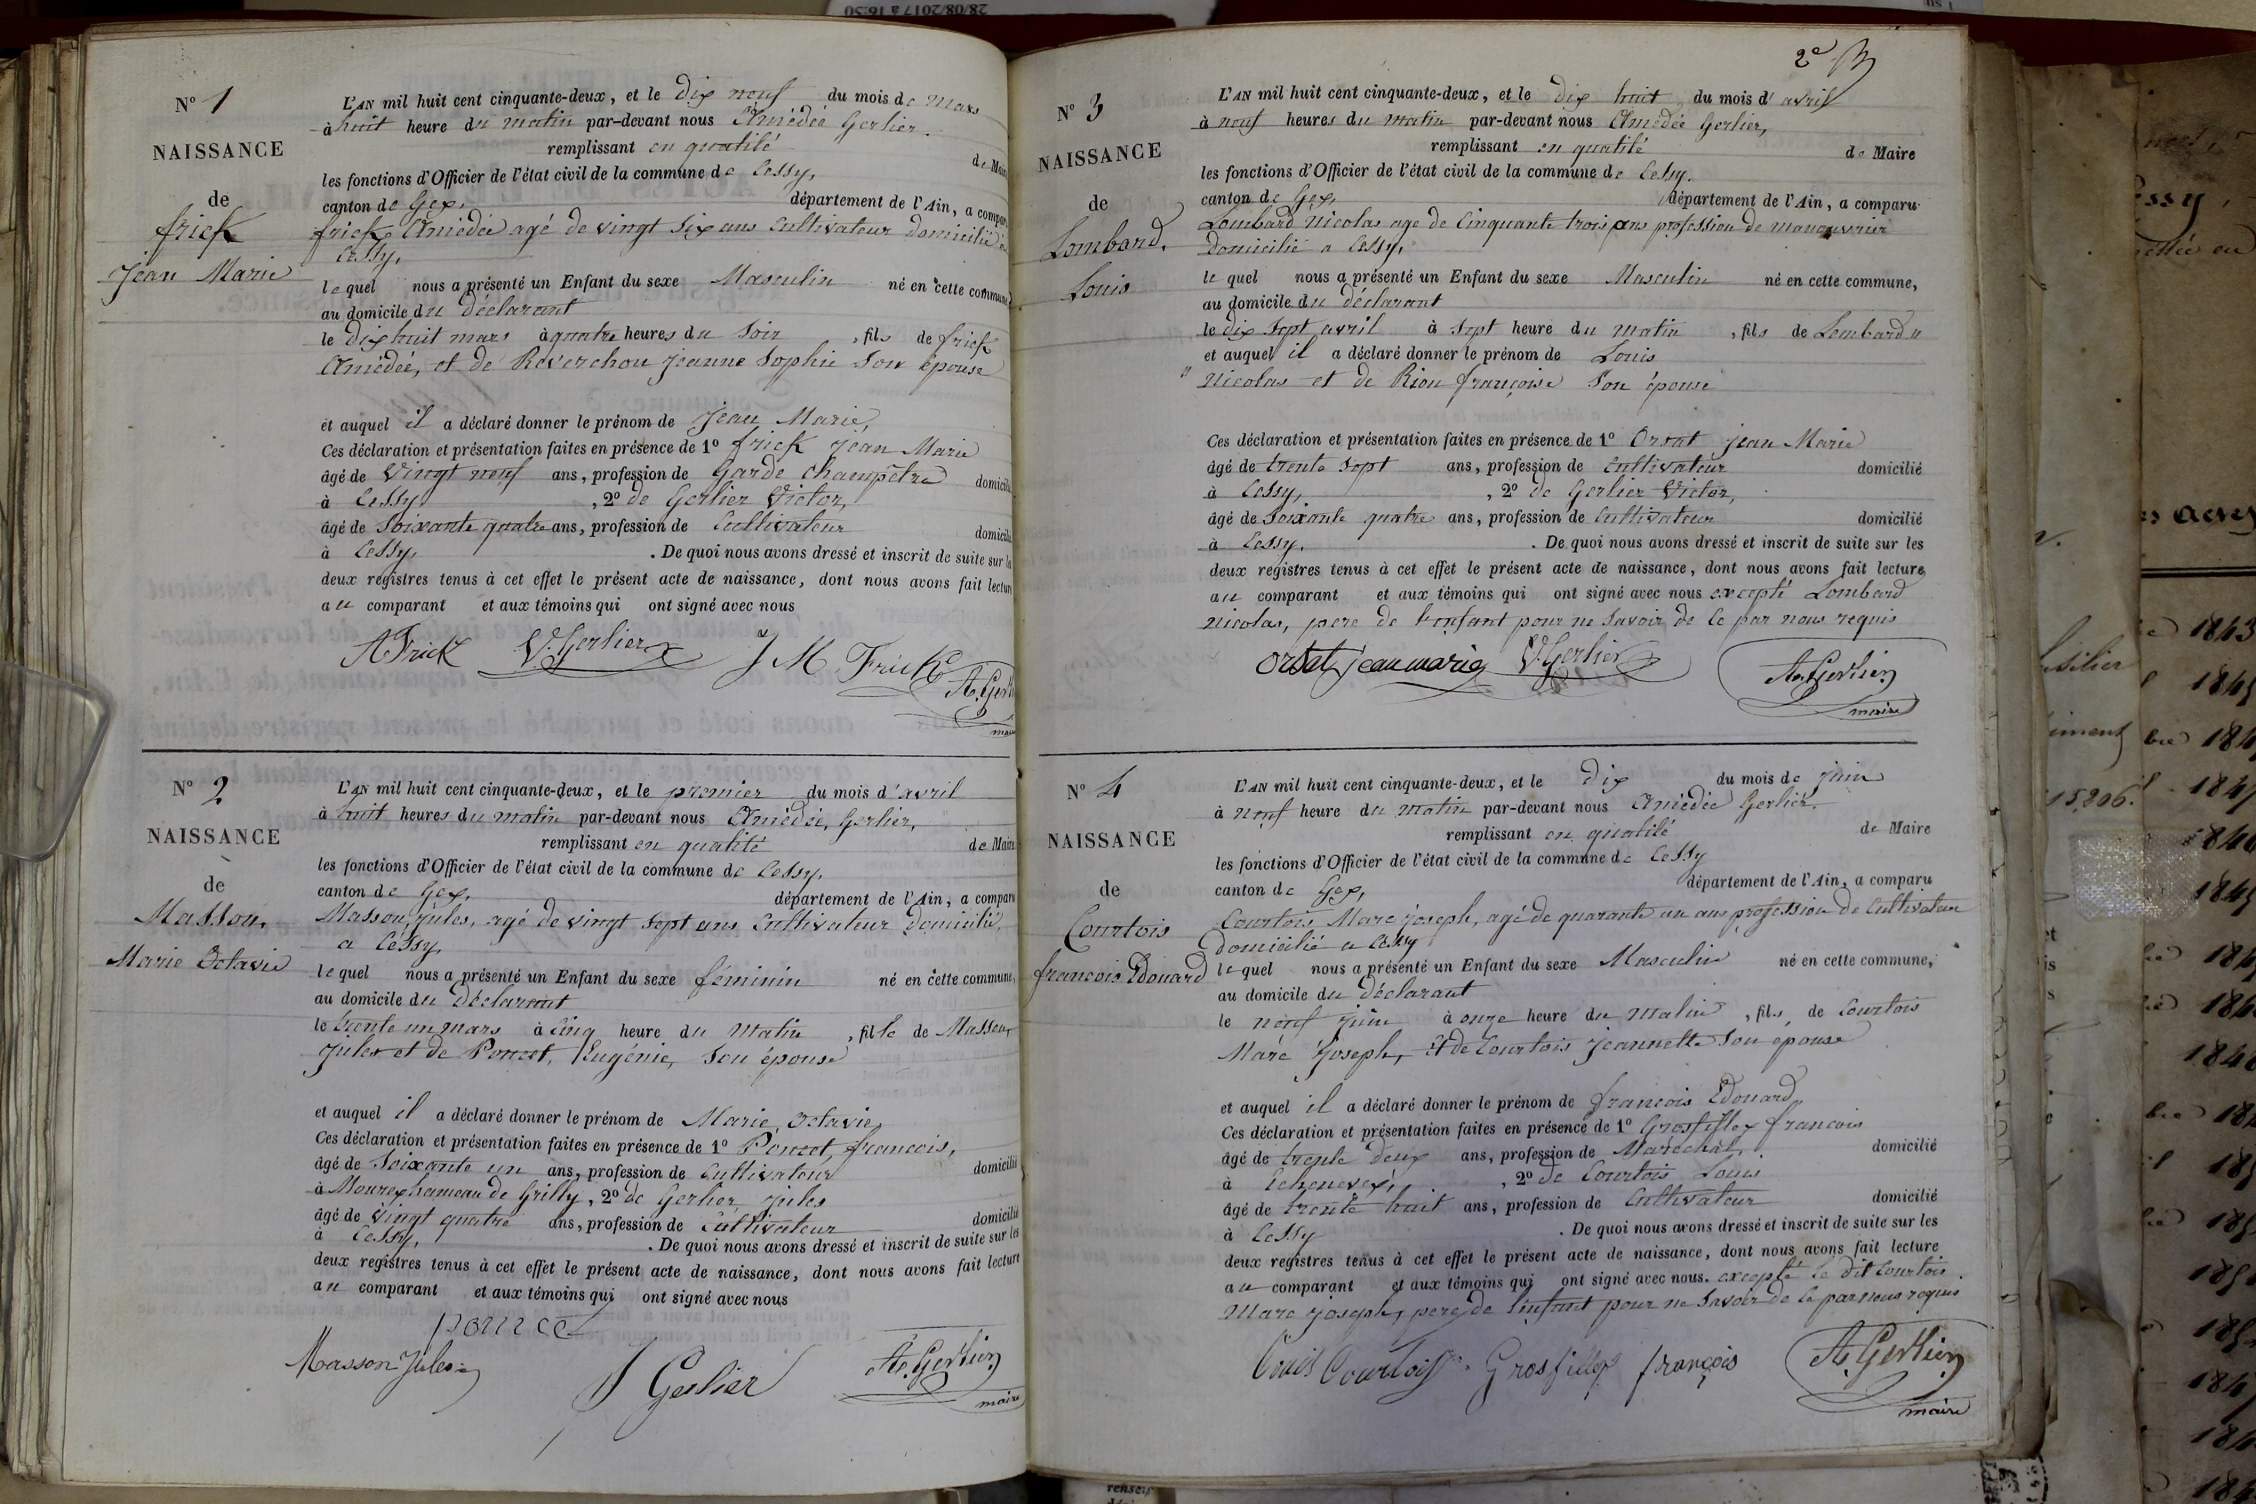 28/08/2017 à 16:50
N° 1
NAISSANCE
de
frick
Jean Marie
L'AN mil huit cent cinquante-deux, et le dix neuf du mois de Mars
à huit heure du matin par-devant nous Amédée Gerlier.
remplissant en qualité de Maire
les fonctions d'Officier de l'état civil de la commune de Cessy,
canton de Gex, département de l'Ain, a comparu
frick Amédée agé de vingt six ans Cultivateur domicilié à
Cessy,
lequel nous a présenté un Enfant du sexe Masculin né en cette commune,
au domicile du déclarant
le dix huit mars à quatre heures du Soir, fils de frick
Amédée, et de Reverchon Jeanne Sophie Son épouse
et auquel il a déclaré donner le prénom de Jean Marie,
Ces déclaration et présentation faites en présence de 1° frick Jean Marie
âgé de Vingt neuf ans, profession de Garde champêtre domicilié
à Cessy, 2° de Gerlier Victor,
âgé de Soixante quatre ans, profession de Cultivateur domicilié
à Cessy, . De quoi nous avons dressé et inscrit de suite sur les
deux registres tenus à cet effet le présent acte de naissance, dont nous avons fait lecture
au comparant et aux témoins qui ont signé avec nous
A Frick V. Gerlier J M Frick A. Gerl
maire
N° 2
NAISSANCE
de
Masson,
Marie Octavie
L'AN mil huit cent cinquante-deux, et le premier du mois d'avril
à huit heures du matin par-devant nous Amédée, Gerlier,
remplissant en qualité de Maire
les fonctions d'Officier de l'état civil de la commune de Cessy,
canton de Gex, département de l'Ain, a comparu
Masson, Jules, agé de vingt Sept ans Cultivateur domicilié,
a Cessy,
lequel nous a présenté un Enfant du sexe féminin né en cette commune,
au domicile du déclarant
le trente un mars à Cinq heure du Matin, fille de Masson,
Jules et de Poncet, Eugénie, Son épouse
et auquel il a déclaré donner le prénom de Marie, Octavie,
Ces déclaration et présentation faites en présence de 1° Poncet, francois,
âgé de Soixante un ans, profession de Cultivateur domicilié
à Mourex hameau de Grilly, 2° de Gerlier Jules
âgé de Vingt quatre ans, profession de Cultivateur domicilié
à Cessy, . De quoi nous avons dressé et inscrit de suite sur les
deux registres tenus à cet effet le présent acte de naissance, dont nous avons fait lecture
au comparant et aux témoins qui ont signé avec nous
poncet
Masson Jules J Gerlier A. Gerlier
maire
2e
N° 3
NAISSANCE
de
Lombard,
Louis
L'AN mil huit cent cinquante-deux, et le dix huit du mois d'avril
à neuf heures du matin par-devant nous Amédée Gerlier,
remplissant en qualité de Maire
les fonctions d'Officier de l'état civil de la commune de Cessy.
canton de Gex, département de l'Ain, a comparu
Lombard Nicolas age de Cinquante trois ans profession de manouvrier
domicilié a Cessy,
lequel nous a présenté un Enfant du sexe Masculin né en cette commune,
au domicile du déclarant
le dix Sept avril à Sept heure du matin, fils de Lombard "
et auquel il a déclaré donner le prénom de Louis
" Nicolas et de Rion françoise Son épouse
Ces déclaration et présentation faites en présence de 1° Orsat jean Marie
âgé de trente Sept ans, profession de Cultivateur domicilié
à Cessy, 2° de Gerlier Victor,
âgé de Soixante quatre ans, profession de Cultivateur domicilié
à Cessy. . De quoi nous avons dressé et inscrit de suite sur les
deux registres tenus à cet effet le présent acte de naissance, dont nous avons fait lecture
au comparant et aux témoins qui ont signé avec nous excepté Lombard
Nicolas, pere de l'enfant pour ne Savoir de Ce par nous requis
Orsat jean marie V. Gerlier A. Gerlier
maire
N° 4
NAISSANCE
de
Courtois
francois Edouard
L'AN mil huit cent cinquante-deux, et le dix du mois de juin
à neuf heure du matin par-devant nous Amédée Gerlier.
remplissant en qualité de Maire
les fonctions d'Officier de l'état civil de la commune de Cessy
canton de Gex, département de l'Ain, a comparu
Courtois, Marc joseph, agé de quarante un ans profession de Cultivateur
domicilié a Cessy
lequel nous a présenté un Enfant du sexe Masculin né en cette commune,
au domicile du déclarant
le neuf Juin à onze heure du Matin, fils de Courtois
Marc Joseph, et de Courtois Jeannette Son épouse
et auquel il a déclaré donner le prénom de francois Edouard
Ces déclaration et présentation faites en présence de 1° Grosfillex francois
âgé de trente deux ans, profession de Maréchal, domicilié
à Echenevex, 2° de Courtois Louis
âgé de trente huit ans, profession de Cultivateur domicilié
à Cessy . De quoi nous avons dressé et inscrit de suite sur les
deux registres tenus à cet effet le présent acte de naissance, dont nous avons fait lecture
au comparant et aux témoins qui ont signé avec nous. excepté le dit Courtois
Marc joseph, pere de l'enfant pour ne Savoir de Ce par nous requis
Louis Courtois Grosfillex françois A. Gerlier
maire